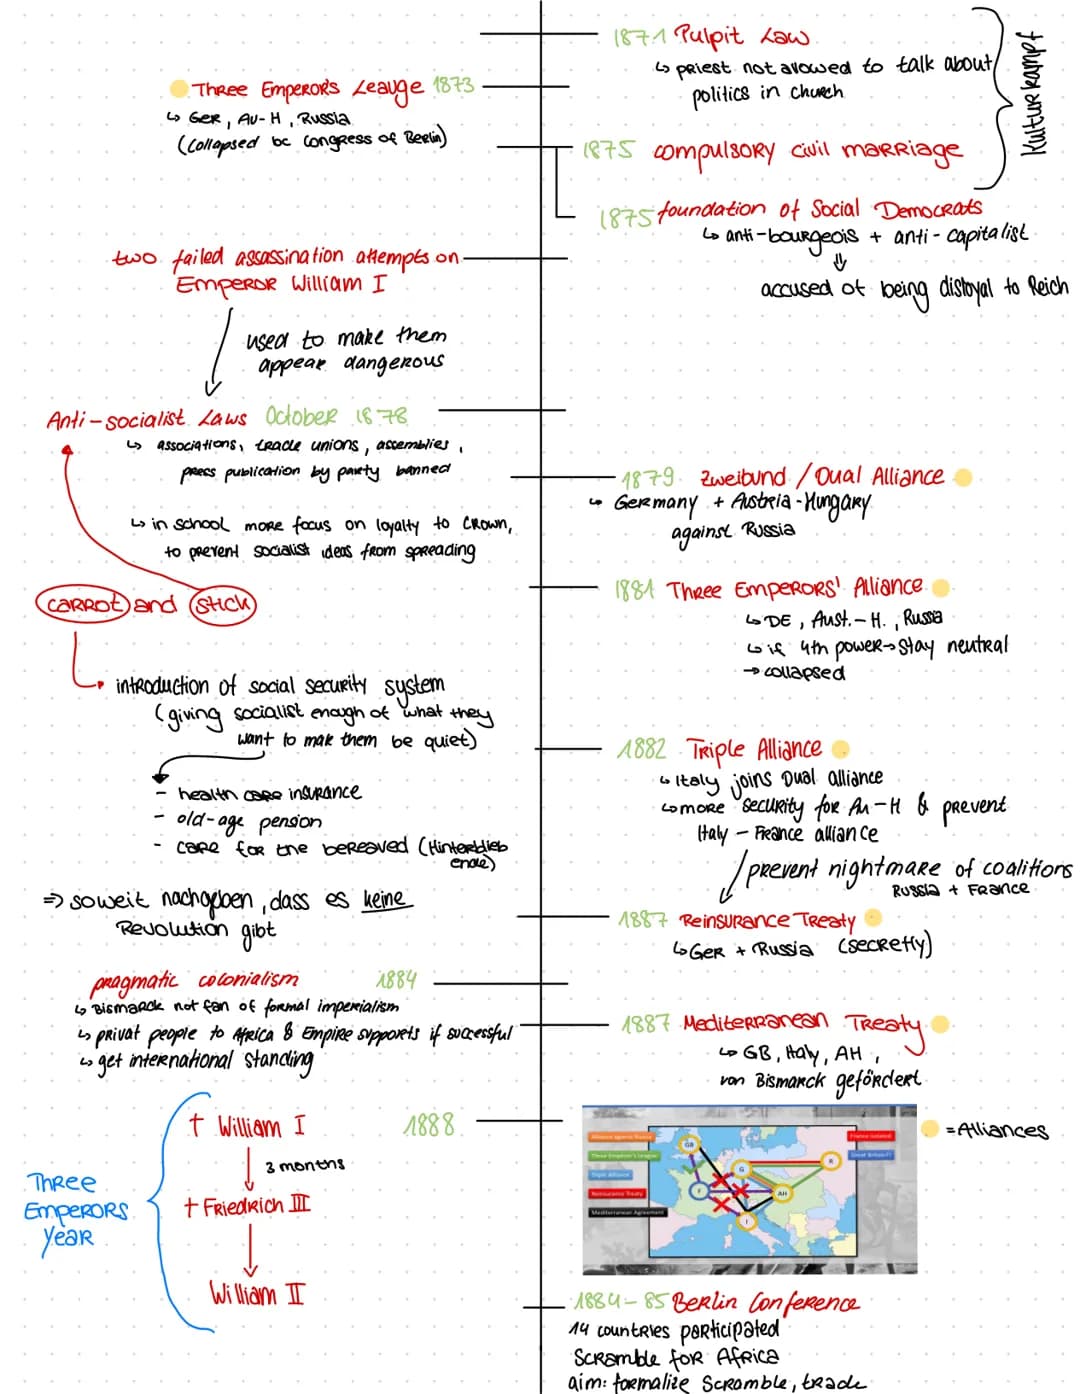 1871 Pulpit Law
↳ priest not allowed to talk about
politics in church
Kulturkampf
Three Emperor's Leauge 1873
↳ Ger, Au-H, Russia
(collapsed bc Congress of Berlin)
1875 compulsory civil marriage
1875 foundation of Social Democrats
↳ anti-bourgeois + anti-capitalist
⇓
accused of being disloyal to Reich
two failed assassination attempts on
Emperor William I
used to make them
appear dangerous
Anti-socialist Laws October 1878
↳ associations, trade unions, assemblies,
press publication by party banned
↳ in school more focus on loyalty to crown,
to prevent socialist ideas from spreading
1879 Zweibund / Dual Alliance
↳ Germany + Austria-Hungary
against Russia
carrot and stick
1881 Three Emperors' Alliance
↳ DE, Aust.-H., Russia
↳ if 4th power → stay neutral
→ collapsed
introduction of social security system
(giving socialist enough of what they
want to mak them be quiet)
- health care insurance
- old-age pension
- care for the bereaved (Hinterblieb
ende)
⇒ soweit nachgeben, dass es keine
Revolution gibt
1882 Triple Alliance
↳ Italy joins Dual alliance
↳ more security for Au-H & prevent
Italy - France alliance
prevent nightmare of coalitions
Russia + France
1887 Reinsurance Treaty
↳ Ger + Russia (secretly)
pragmatic colonialism 1884
↳ Bismarck not fan of formal imperialism
↳ privat people to Africa & Empire supports if successful
↳ get international standing
1887 Mediterranean Treaty
↳ GB, Italy, AH,
von Bismarck gefördert
= Alliances
Three
Emperors
Year
† William I 1888
3 months
† Friedrich III
William II
Alliance against Russia
Three Emperor's League
Triple Alliance
Reinsurance Treaty
Mediterranean Agreement
France isolated
Great Britain!?
GB
G
R
F
AH
I
1884-85 Berlin Conference
14 countries participated
Scramble for Africa
aim: formalize Scramble, trade